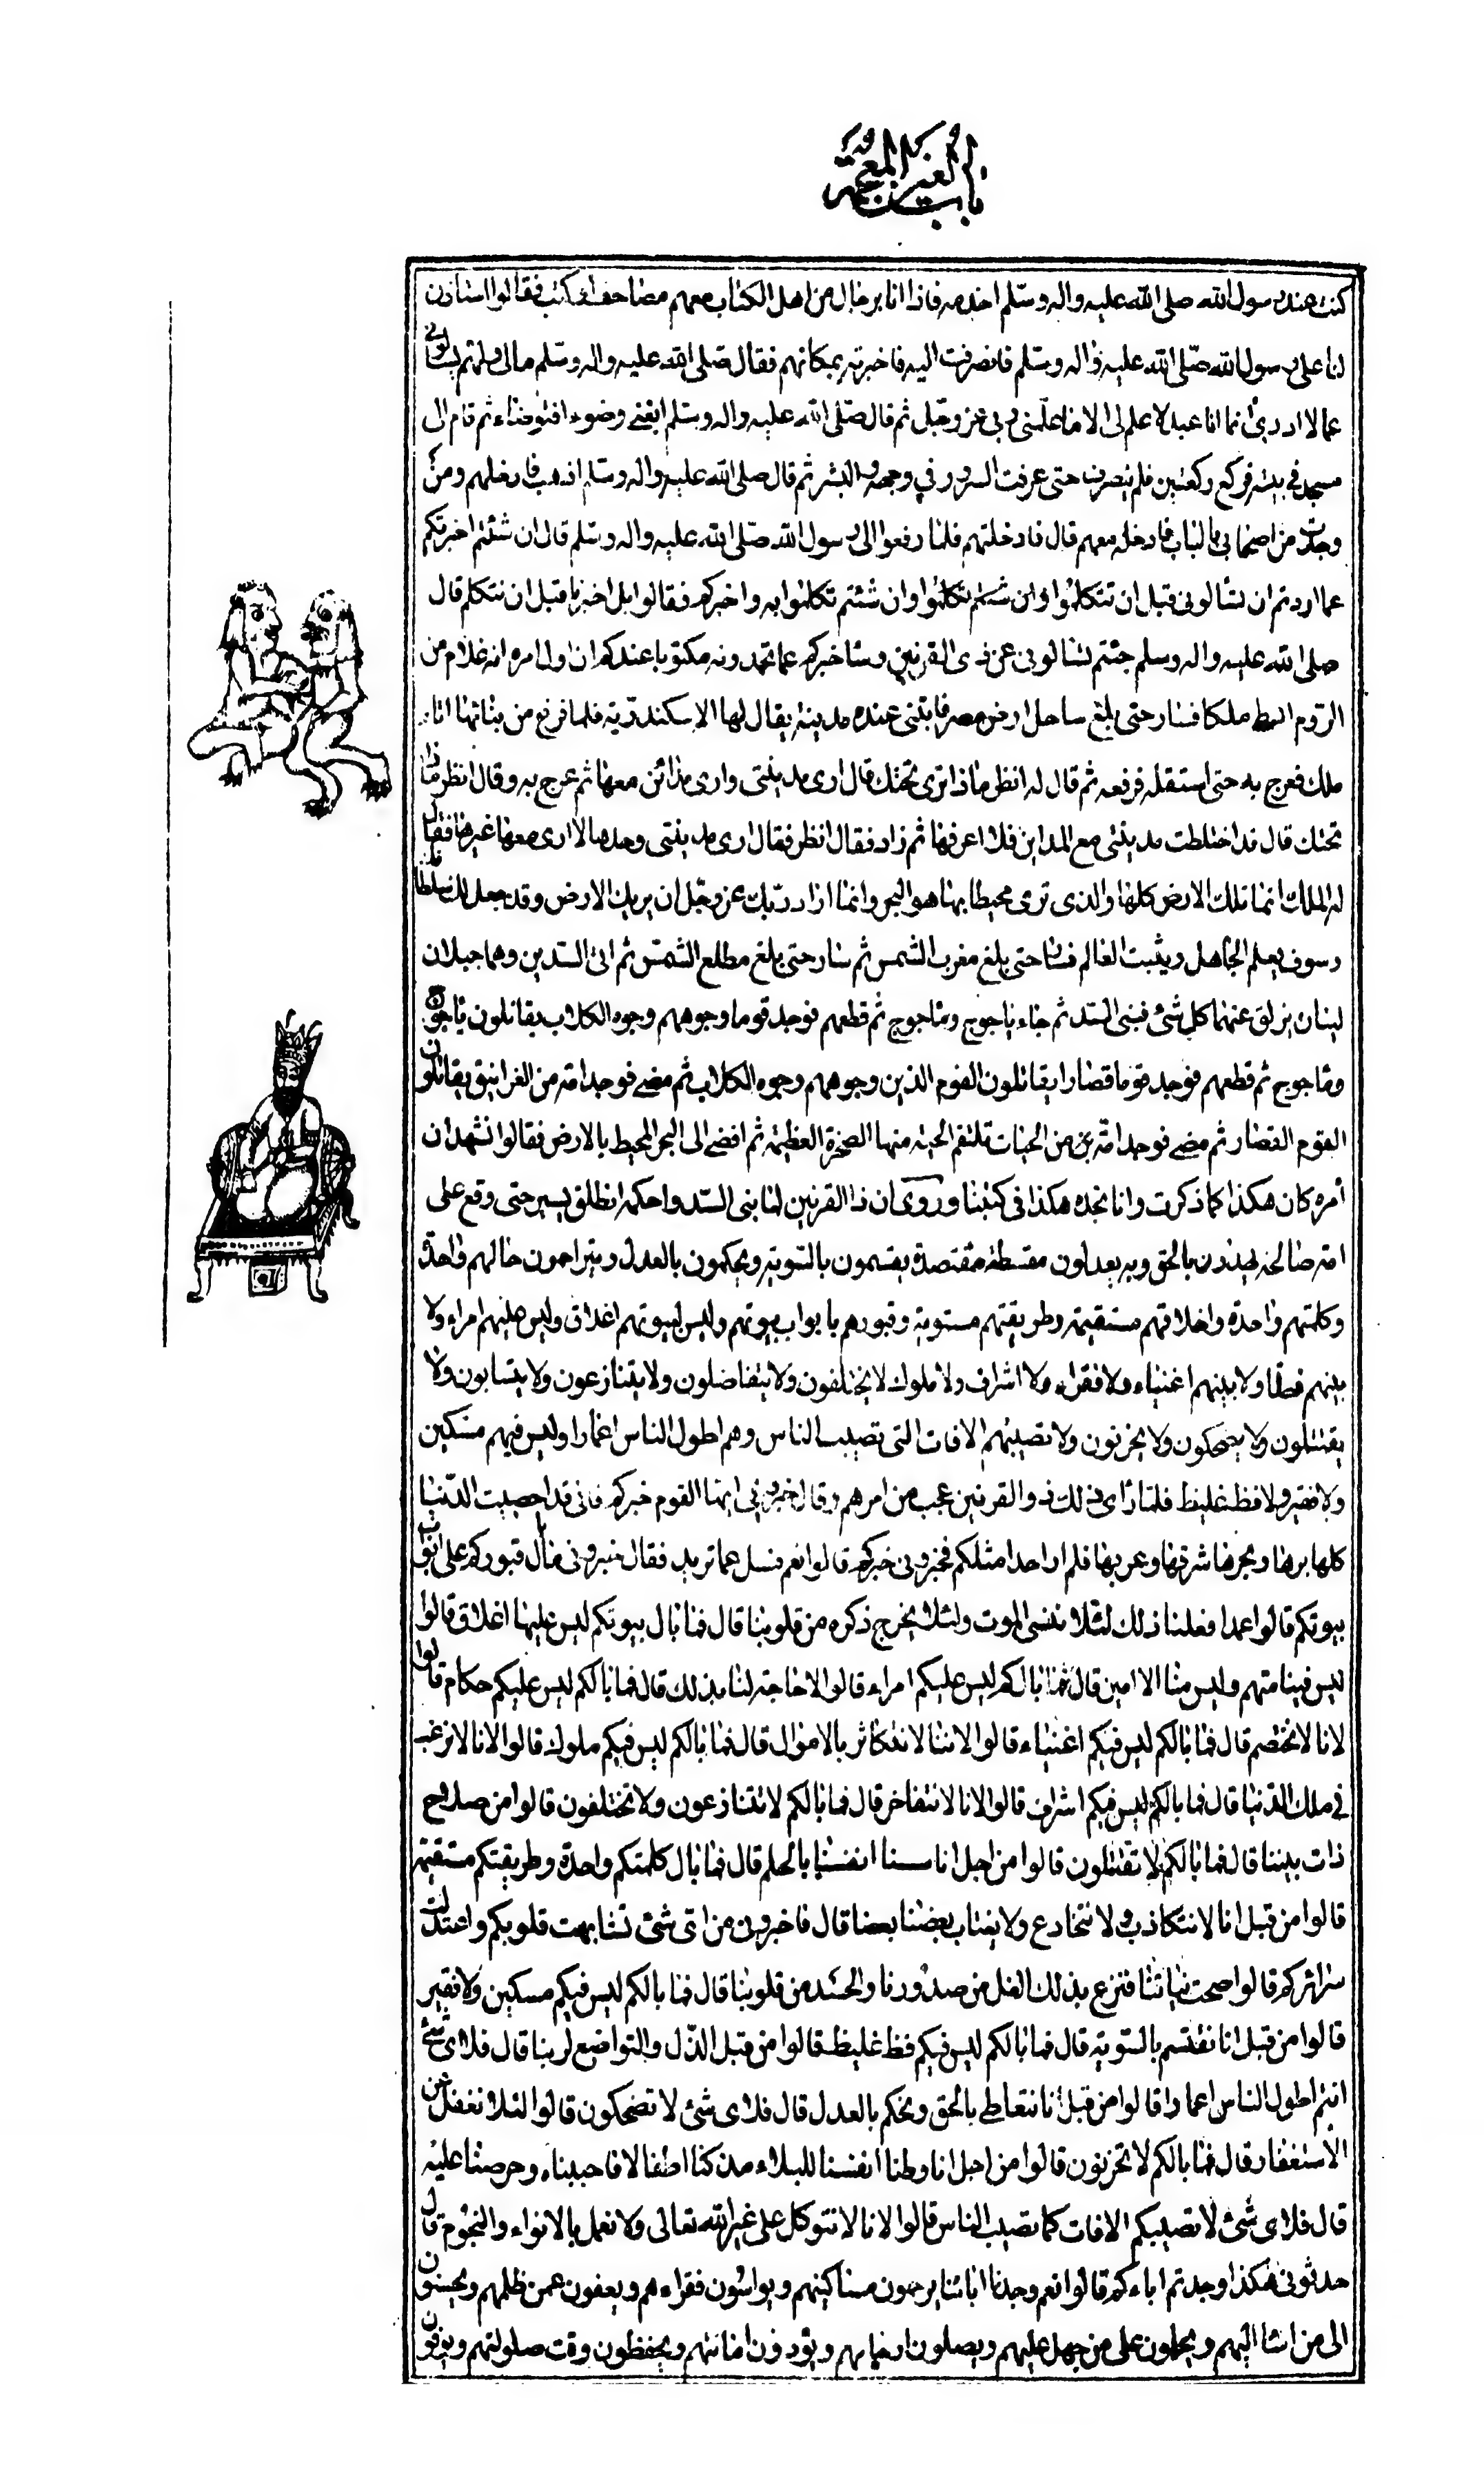 باب الغين المعجمة
كنت عند رسول الله صلى الله عليه واله وسلم اخدمه فاذا انا برجال من اهل الكتاب معهم مصاحف او كتب فقالوا استاذن
لنا على رسول الله صلى الله عليه واله وسلم فانصرفت اليه فاخبرته بمكانهم فقال صلى الله عليه واله وسلم مالى ولهم يسالونى
عما لا ادرى انما انا عبد لا علم لى الا ما علمنى ربى عز وجل ثم قال صلى الله عليه واله وسلم ابغنى وضوءا فتوضاء ثم قام الى
مسجد فى بيته فركع ركعتين فلم ينصرف حتى عرفت السرور فى وجهه والبشر ثم قال صلى الله عليه واله وسلم اذهب فادخلهم ومن
وجدت من اصحابى بالباب فادخله معهم قال فادخلتهم فلما رفعوا الى رسول الله صلى الله عليه واله وسلم قال ان شئتم اخبرتكم
عما اردتم ان تسالونى قبل ان تتكلموا وان شئتم تكلموا به واخبركم فقالوا بل اخبرنا قبل ان نتكلم قال
صلى الله عليه واله وسلم جئتم تسالونى عن ذى القرنين وساخبركم عما تجدونه مكتوبا عندكم ان اول امره انه غلام من
الروم اعطى ملكا فسار حتى بلغ ساحل ارض مصر فابتنى عنده مدينة يقال لها الاسكندرية فلما فرغ من بنائها اتاه
ملك فعرج به حتى استقله فرفعه ثم قال له انظر ماذا ترى تحتك قال ارى مدينتى وارى مدائن معها ثم عرج به وقال انظر ماذا
تحتك قال قد اختلطت مدينتى مع المداين فلا اعرفها ثم زاد فقال انظر فقال ارى مدينتى وحدها لا ارى معها غيرها فقال
له الملك انما تلك الارض كلها والذى ترى محيطا بها هو البحر وانما اراد ربك عز وجل ان يريك الارض وقد جعل لك سلطانا
وسوف يعلم الجاهل ويثبت العالم فسار حتى بلغ مغرب الشمس ثم سار حتى بلغ مطلع الشمس ثم اتى السدين وهما جبلان
لينان يزلق عنهما كل شئ فبنى السد ثم جاء ياجوج وماجوج ثم قطعهم فوجد قوما وجوههم وجوه الكلاب يقاتلون ياجوج
وماجوج ثم قطعهم فوجد قوما قصارا يقاتلون القوم الذين وجوههم وجوه الكلاب ثم مضى فوجد امة من الغرانيق يقاتلون
القوم القصار ثم مضى فوجد امة من الحيات تلتقم الحية منها الصخرة العظيمة ثم افضى الى البحر المحيط بالارض فقالوا نشهد ان
امره كان هكذا كما ذكرت وانا نجده هكذا فى كتبنا وروى ان ذا القرنين لما بنى السد واحكمه انطلق يسير حتى وقع على
امة صالحة يهدون بالحق وبه يعدلون مقسطة مقتصدة يقسمون بالسوية ويحكمون بالعدل ويتراحمون حالهم واحدة
وكلمتهم واحدة واخلاقهم مستقيمة وطريقتهم مستوية وقبورهم بابواب بيوتهم وليس لبيوتهم اغلاق وليس عليهم امراء ولا
بينهم قضاة ولا بينهم اغنياء ولا فقراء ولا اشراف ولا ملوك لا يختلفون ولا يتفاضلون ولا يتنازعون ولا يتسابون ولا
يقتتلون ولا يضحكون ولا يحزنون ولا تصيبهم الافات التى تصيب الناس وهم اطول الناس اعمارا وليس فيهم مسكين
ولا فقير ولا فظ غليظ فلما راى ذلك ذو القرنين عجب من امرهم وقال اخبرونى ايها القوم خبركم فانى قد احصيت الدنيا
كلها برها وبحرها شرقها وغربها فلم ار احدا مثلكم فخبرونى خبركم قالوا نعم فسل عما تريد فقال خبرونى ما بال قبوركم على ابواب
بيوتكم قالوا عمدا فعلنا ذلك لئلا ننسى الموت ولئلا يخرج ذكره من قلوبنا قال فما بال بيوتكم ليس عليها اغلاق قالوا
ليس فينا متهم وليس منا الا امين قال فما بالكم ليس عليكم امراء قالوا لا حاجة لنا بذلك قال فما بالكم ليس عليكم حكام قالوا
لانا لا نختصم قال فما بالكم ليس فيكم اغنياء قالوا لاننا لا نتكاثر بالاموال قال فما بالكم ليس فيكم ملوك قالوا لانا لا نرغب
فى ملك الدنيا قال فما بالكم ليس فيكم اشراف قالوا لانا لا نتفاخر قال فما بالكم لا تتنازعون ولا تختلفون قالوا من صلاح
ذات بيننا قال فما بالكم لا تقتتلون قالوا من اجل انا سسنا انفسنا بالحلم قال فما بال كلمتكم واحدة وطريقتكم مستقيمة
قالوا من قبل انا لا نتكاذب ولا نتخادع ولا يغتاب بعضنا بعضا قال فاخبرونى من اى شئ تشابهت قلوبكم واعتدلت
سرائركم قالوا صحت نياتنا فنزع بذلك الغل من صدورنا والحسد من قلوبنا قال فما بالكم ليس فيكم مسكين ولا فقير
قالوا من قبل انا نقتسم بالسوية قال فما بالكم ليس فيكم فظ غليظ قالوا من قبل الذل والتواضع لربنا قال فلاى شئ
انتم اطول الناس اعمارا قالوا من قبل انا نتعاطى بالحق ونحكم بالعدل قال فلاى شئ لا تضحكون قالوا لئلا نغفل عن
الاستغفار قال فما بالكم لا تحزنون قالوا من اجل انا وطنا انفسنا للبلاء مذ كنا اطفالا فاحببناه وحرصنا عليه
قال فلاى شئ لا تصيبكم الافات كما تصيب الناس قالوا لانا لا نتوكل على غير الله تعالى ولا نعمل بالانواء والنجوم قال
حدثونى هكذا وجدتم اباءكم قالوا نعم وجدنا اباءنا يرحمون مساكينهم ويواسون فقراءهم ويعفون عمن ظلمهم ويحسنون
الى من اساء اليهم ويحلمون على من جهل عليهم ويصلون ارحامهم ويؤدون اماناتهم ويحفظون وقت صلوتهم ويوفون